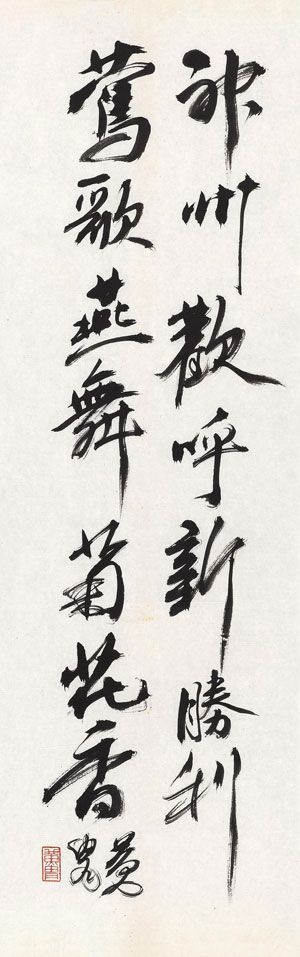 神州歡呼新勝利
鶯歌燕舞菊花香